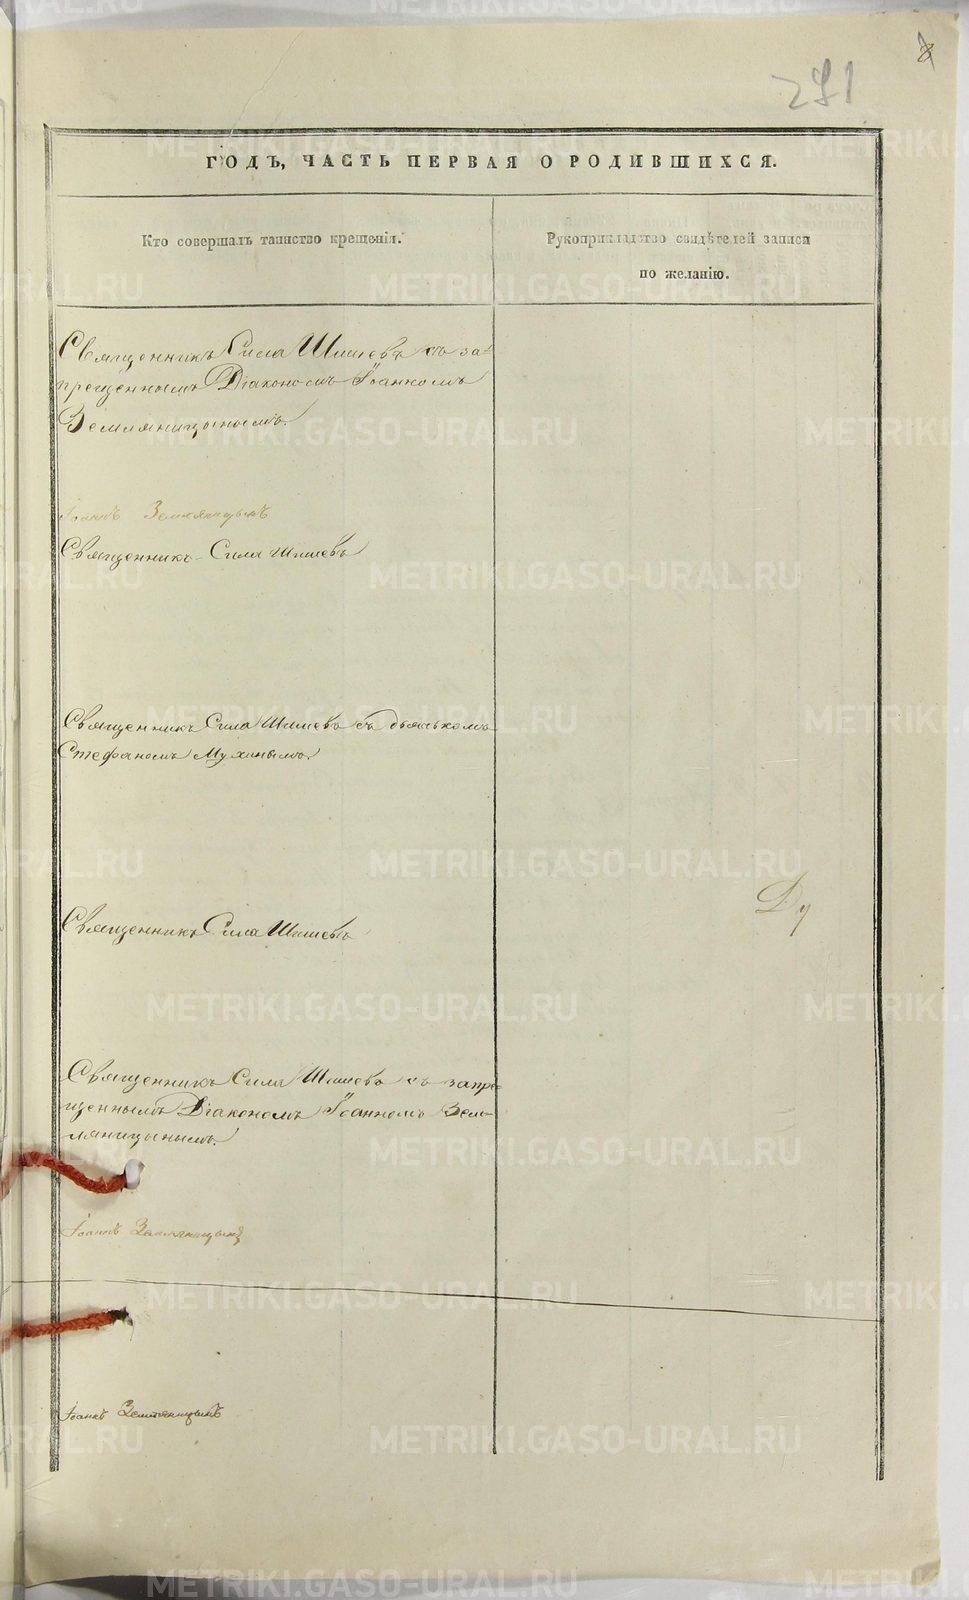 291
ГОДЪ, ЧАСТЬ ПЕРВАЯ О РОДИВШИХСЯ.
Кто совершалъ таинство крещенія.
Рукоприкладство свидѣтелей записи
по желанію.
Священникъ Сила Шишевъ съ за-
прещеннымъ Діакономъ Іоанномъ
Земляницынымъ.
Іоаннъ Земляницынъ
Священникъ Сила Шишевъ
Священникъ Сила Шишевъ съ дьячькомъ
Стефаномъ Мухинымъ.
Ду
Священникъ Сила Шишевъ
Священникъ Сила Шишевъ съ запре-
щеннымъ Діакономъ Іоанномъ Зем-
ляницынымъ.
Іоаннъ Земляницынъ
Іоаннъ Земляницынъ
METRIKI.GASO-URAL.RU